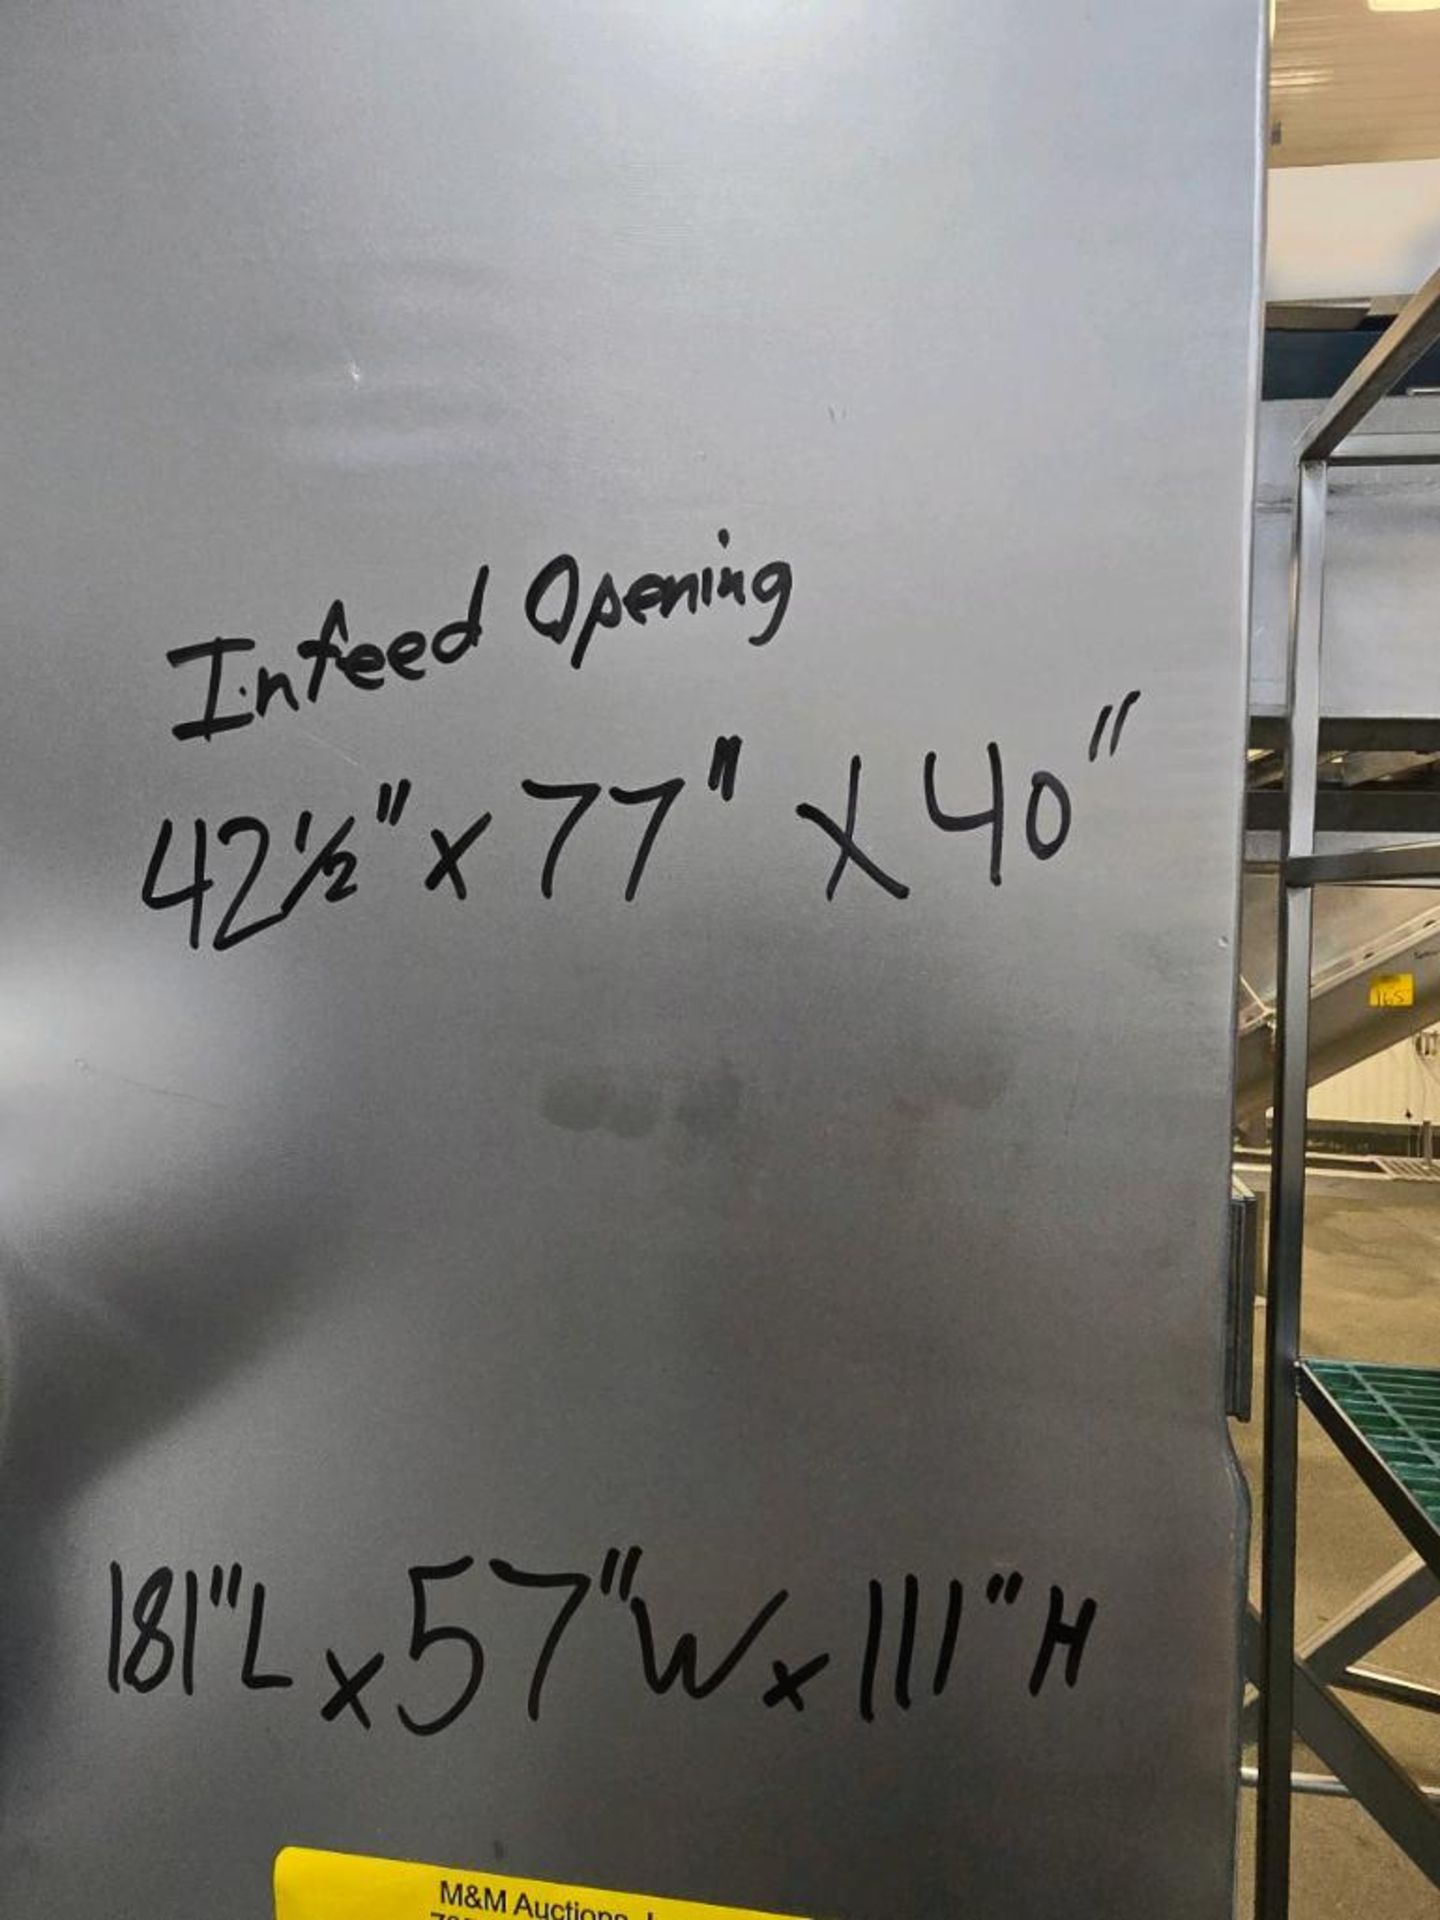 Infeed Opening
42 1/2" x 77" x 40"
165
181"L x 57"W x 111"H
M&M Auctions